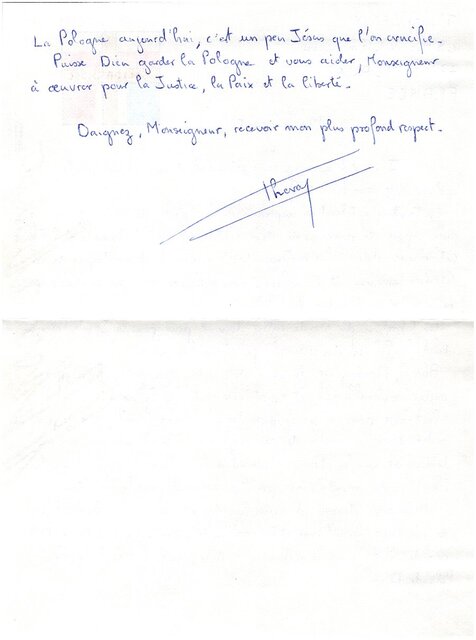 La Pologne aujourd'hui, c'est un peu Jésus que l'on crucifie.
Puisse Dieu garder la Pologne et vous aider, Monseigneur
à œuvrer pour la Justice, la Paix et la liberté.
Daignez, Monseigneur, recevoir mon plus profond respect.